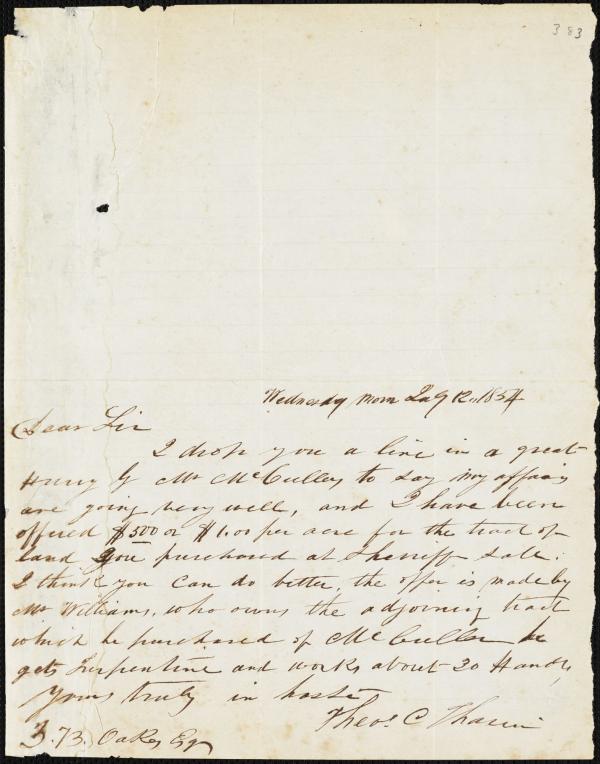 383
Wednesday Morn July 12, 1854
Dear Sir
I drop you a line in a great
Hurry by Mr McCulley to say my affairs
are going very well, and I have been
offered $500 or $1.00 per acre for the tract of
land you purchased at Sherriff Sale.
I think you can do better, the offer is made by
Mr Williams, who owns the adjoining tract
which he purchased of McCulley he
gets Turpentine and works about 20 Hands,
Yours truly in haste
Theos. C
Z. B. Oakes Esq